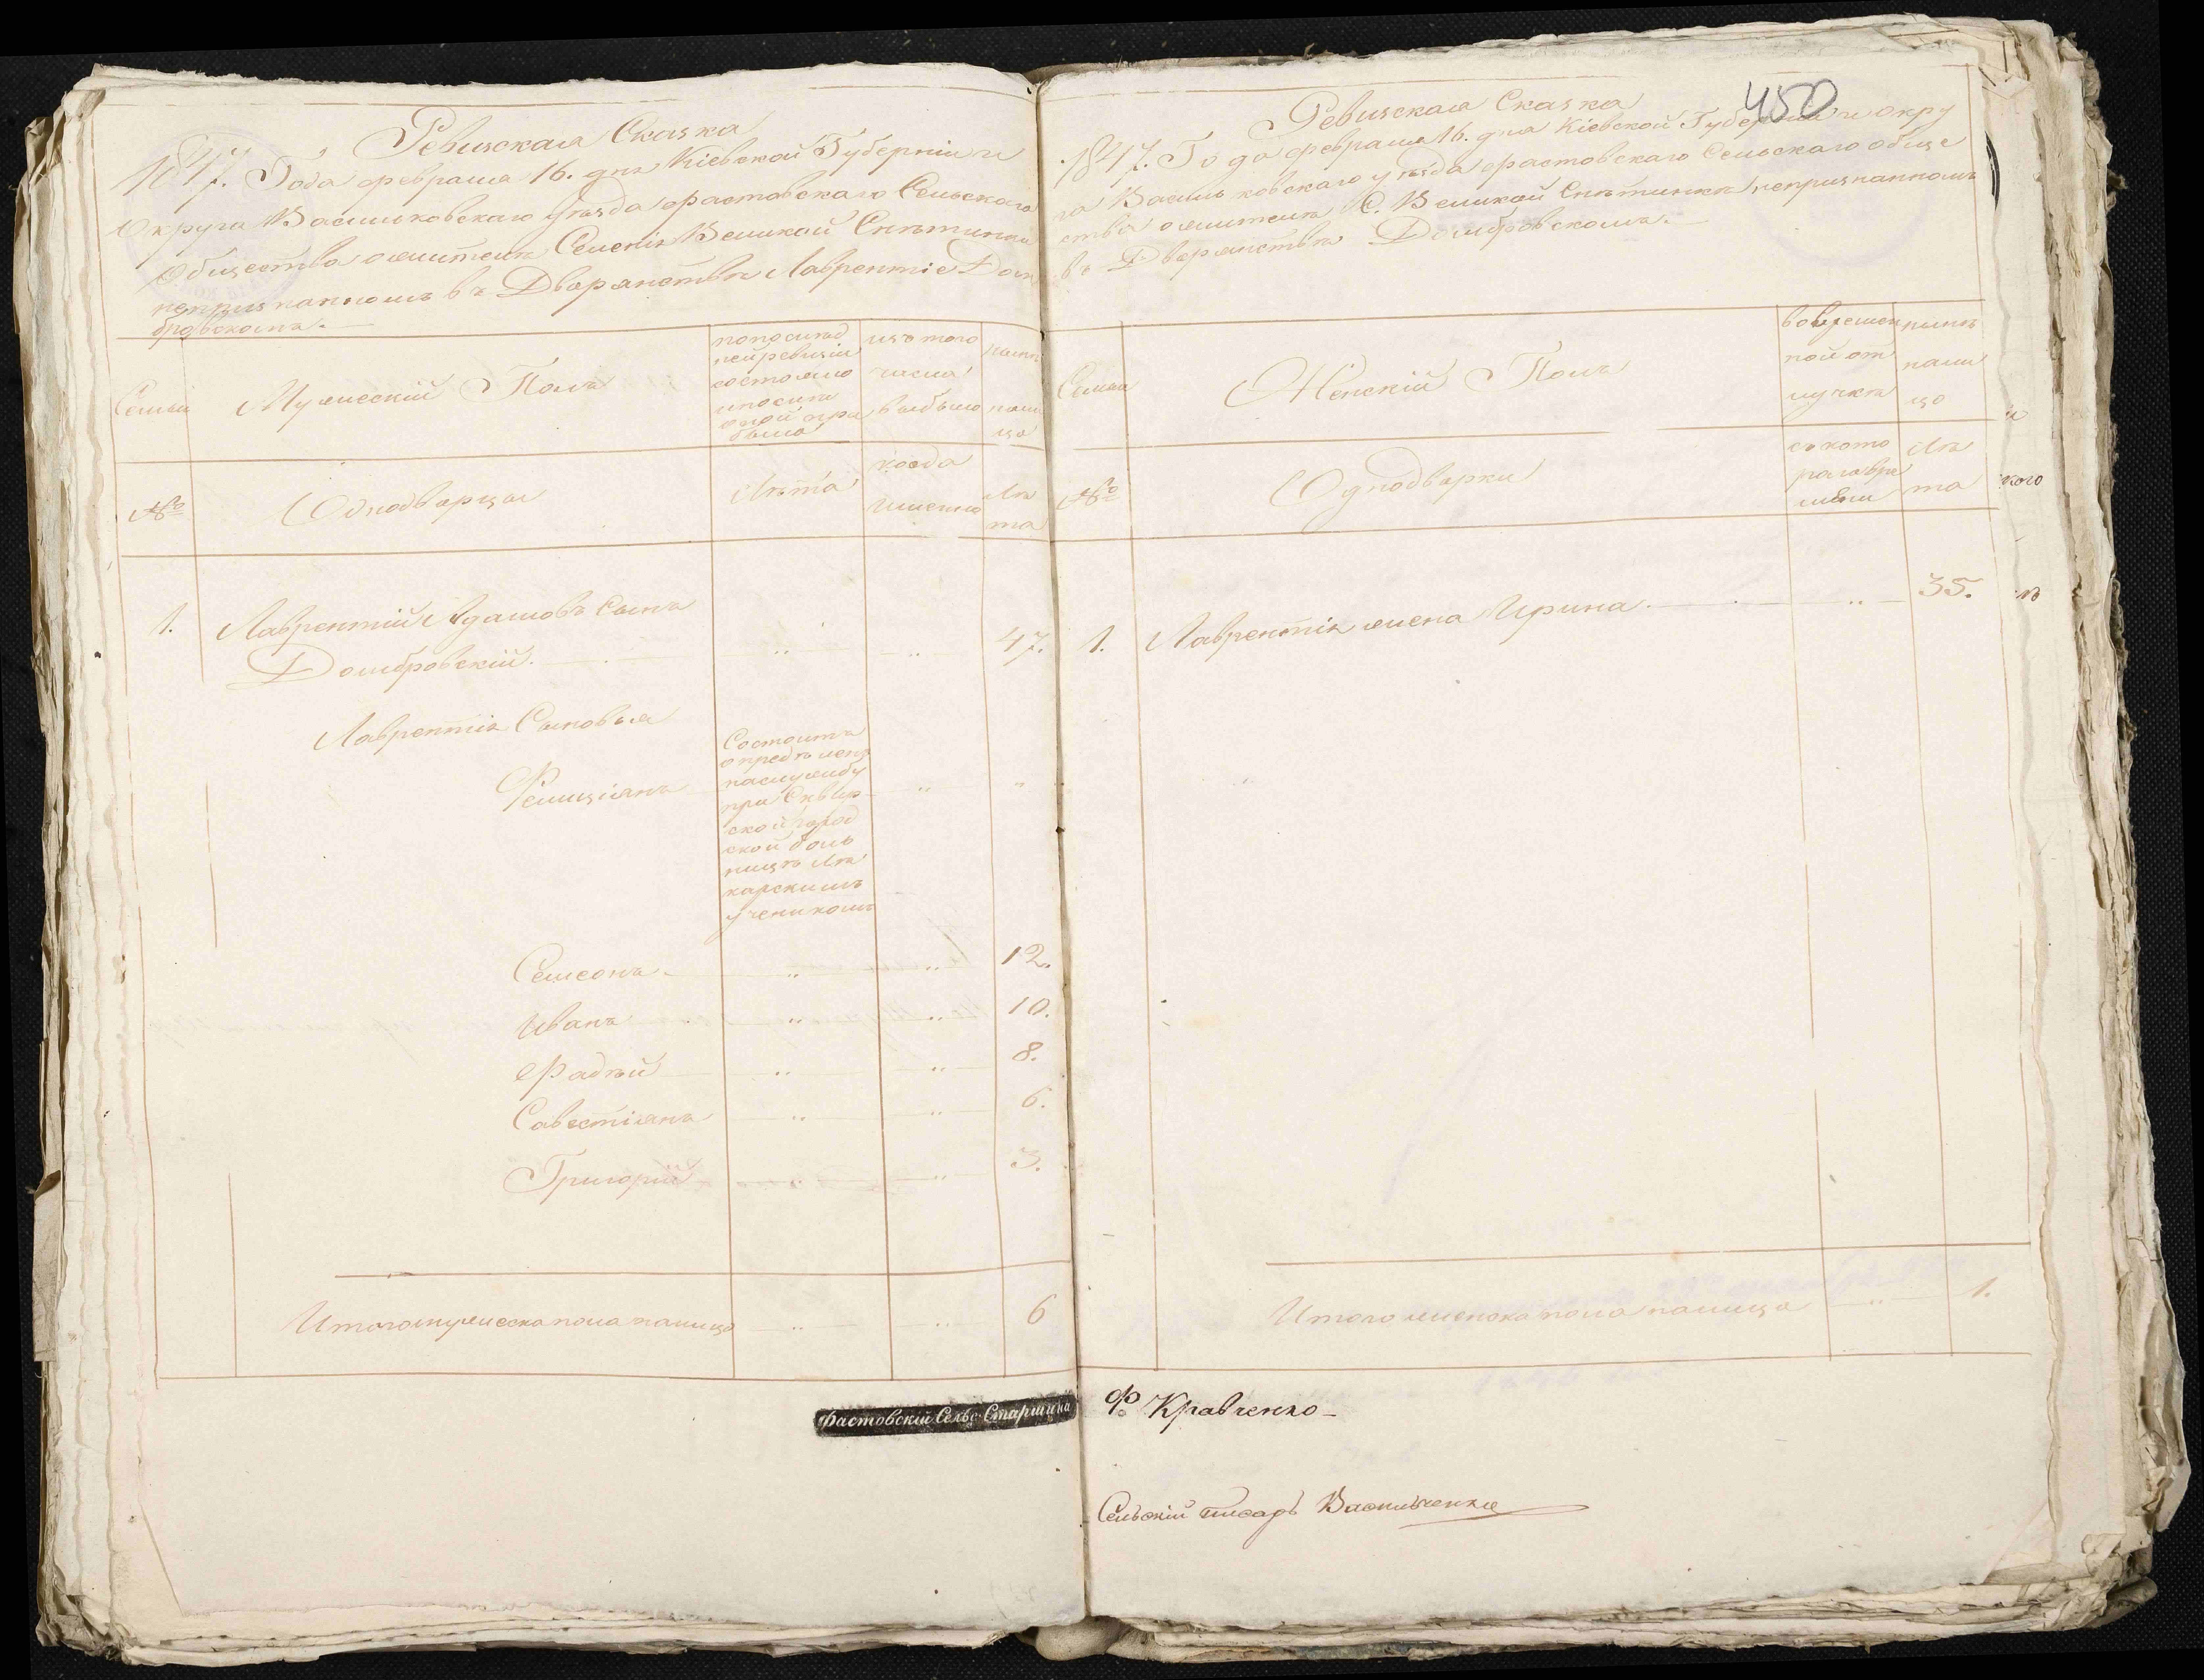 Ревизская Сказка
1847. Года февраля 16. дня Кіевской Губерніи и
Округа Васильковскаго Уѣзда фастовскаго Сельскаго
Общества о жителѣ Селенія Великой Снѣтинки
непризнанномъ въ Дворянствѣ Лаврентіе Дом
бровскомъ.
Семьи
Мужескій Полъ
по послѣд
ней ревизіи
состояло
и послѣ
оной при
было
изъ того
числа
выбыло
нынѣ
нали
цо
№
Однодворцы
Лѣта
когда
именно
Лѣ
та
1. Лаврентій Адамовъ Сынъ
Домбровскій. " " 47.
Лаврентія Сыновья
Фелиціянъ
Состоитъ
опредѣленъ
на службу
при Сквир
ской город
ской боль
ницѣ Лѣ
карскимъ
ученикомъ
" "
Семеонъ " " 12.
Иванъ " " 10.
Фадѣй " " 8.
Савестіянъ " " 6.
Григорій " " 3.
Итого мужеска пола налицо " " 6
фастовскій Сельс. Старшина
450
Ревизская Сказка
1847. Года февраля 16. дня Кіевской Губерніи и окру
га Васильковскаго уѣзда фастовскаго Сельскаго обще
ства о жителѣ С. Великой Снѣтинки непризнанномъ
въ Дворянствѣ Домбровскомъ.
Семьи
Женскій Полъ
во времен
ной от
лучкѣ
нынѣ
нали
цо
№
Однодворки
съ кото
раго вре
мени
Лѣ
та
1. Лаврентія жена Ирина. " 35.
Итого женска пола налицо " 1.
Ф. Кравченко
Сельскій писарь Васильченко
кого